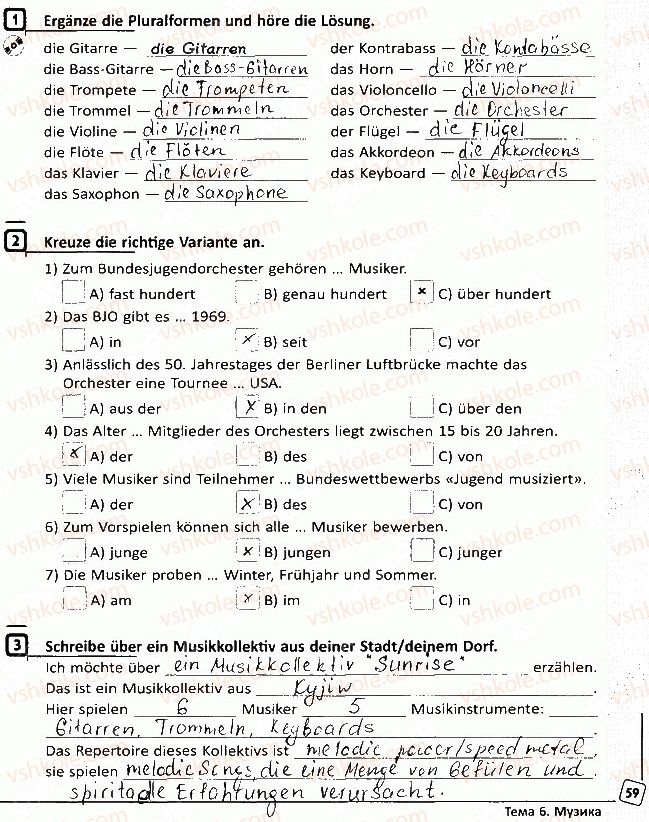 1 Ergänze die Pluralformen und höre die Lösung.
die Gitarre — die Gitarren
die Bass-Gitarre — die Bass-Gitarren
die Trompete — die Trompeten
die Trommel — die Trommeln
die Violine — die Violinen
die Flöte — die Flöten
das Klavier — die Klaviere
das Saxophon — die Saxophone
der Kontrabass — die Kontabässe
das Horn — die Hörner
das Violoncello — die Violoncelli
das Orchester — die Orchester
der Flügel — die Flügel
das Akkordeon — die Akkordeons
das Keyboard — die Keyboards
2 Kreuze die richtige Variante an.
1) Zum Bundesjugendorchester gehören ... Musiker.
A) fast hundert B) genau hundert x C) über hundert
2) Das BJO gibt es ... 1969.
A) in x B) seit C) vor
3) Anlässlich des 50. Jahrestages der Berliner Luftbrücke machte das
Orchester eine Tournee ... USA.
A) aus der x B) in den C) über den
4) Das Alter ... Mitglieder des Orchesters liegt zwischen 15 bis 20 Jahren.
x A) der B) des C) von
5) Viele Musiker sind Teilnehmer ... Bundeswettbewerbs «Jugend musiziert».
A) der x B) des C) von
6) Zum Vorspielen können sich alle ... Musiker bewerben.
A) junge x B) jungen C) junger
7) Die Musiker proben ... Winter, Frühjahr und Sommer.
A) am x B) im C) in
3 Schreibe über ein Musikkollektiv aus deiner Stadt/deinem Dorf.
Ich möchte über ein Musikkollektiv "Sunrise" erzählen.
Das ist ein Musikkollektiv aus Kyjiw.
Hier spielen 6 Musiker 5 Musikinstrumente:
Gitarren, Trommeln, Keyboards
Das Repertoire dieses Kollektivs ist melodic power/speed metal,
sie spielen melodic Songs, die eine Menge von Gefülen und
spirit Erfahtungen verursacht.
59
Тема 6. Музика
vshkole.com